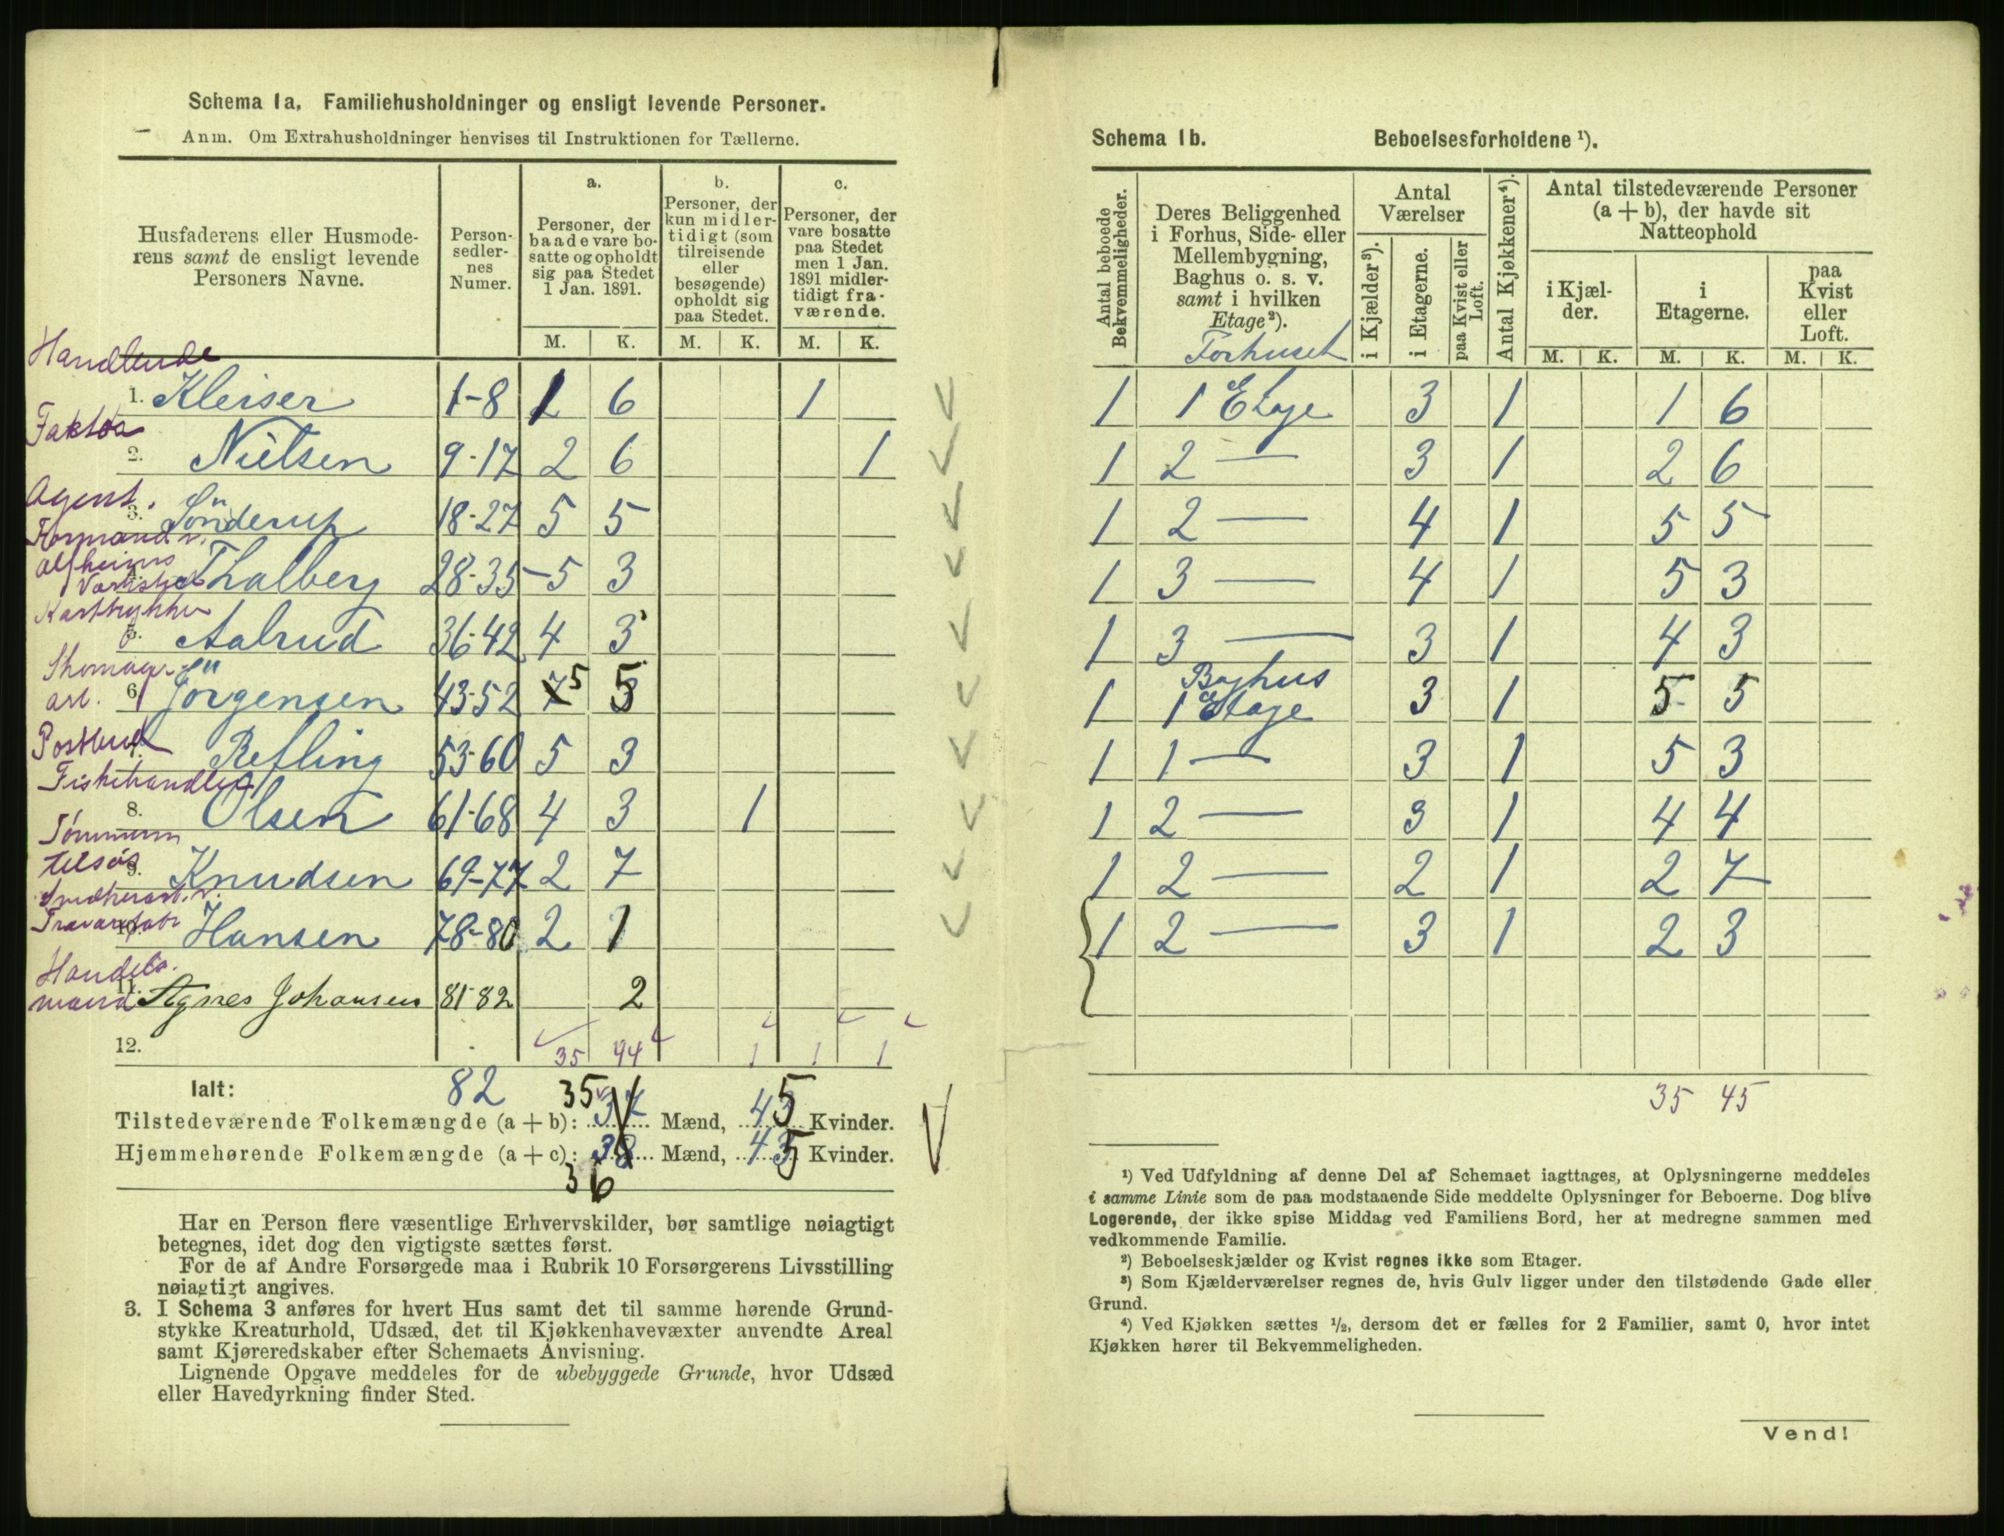 Schema 1a. Familiehusholdninger og ensligt levende Personer.
Anm. Om Extrahusholdninger henvises til Instruktionen for Tællerne.
Husfaderens eller Husmode-
rens samt de ensligt levende
Personers Navne.
Person-
sedler-
nes
Numer.
a.
Personer, der
baade vare bo-
satte og opholdt
sig paa Stedet
1 Jan. 1891.
b.
Personer, der
kun midler-
tidigt (som
tilreisende
eller
besøgende)
opholdt sig
paa Stedet.
c.
Personer, der
vare bosatte
paa Stedet
men 1 Jan.
1891 midler-
tidigt fra-
værende.
M. K. M. K. M. K.
Handlende
1. Kleiser 1-8 1 6 1
Faktor
2. Nielsen 9-17 2 6 1
Agent.
3. Sönderup 18-27 5 5
Formand v.
4. Thalberg 28-35 5 3
5. Aalrud 36-42 4 3
6. Jörgensen 43-52 7 5 5
Postbud
7. Refling 53-60 5 3
Fiskehandler
8. Olsen 61-68 4 3 1
9. Knudsen 69-77 2 7
10. Hansen 78-80 2 1
11. Agnes Johansen 81-82 2
12. 35 44 1 1 1
Ialt: 82
Tilstedeværende Folkemængde (a + b): 35 37 Mænd, 43 5 Kvinder.
Hjemmehørende Folkemængde (a + c): 38 36 Mænd, 43 5 Kvinder.
Har en Person flere væsentlige Erhvervskilder, bør samtlige nøiagtigt
betegnes, idet dog den vigtigste sættes først.
For de af Andre Forsørgede maa i Rubrik 10 Forsørgerens Livsstilling
nøiagtigt angives.
3. I Schema 3 anføres for hvert Hus samt det til samme hørende Grund-
stykke Kreaturhold, Udsæd, det til Kjøkkenhavevæxter anvendte Areal
samt Kjøreredskaber efter Schemaets Anvisning.
Lignende Opgave meddeles for de ubebyggede Grunde, hvor Udsæd
eller Havedyrkning finder Sted.
Schema 1b. Beboelsesforholdene ¹).
Antal beboede
Bekvemmeligheder.
Deres Beliggenhed
i Forhus, Side- eller
Mellembygning,
Baghus o. s. v.
samt i hvilken
Etage²).
Antal
Værelser
i Kjælder³).
i Etagerne.
paa Kvist eller
Loft.
Antal Kjøkkener⁴).
Antal tilstedeværende Personer
(a + b), der havde sit
Natteophold
i Kjæl-
der.
i
Etagerne.
paa
Kvist
eller
Loft.
M. K. M. K. M. K.
Forhuset
1 1 Etage 3 1 1 6
1 2 — 3 1 2 6
1 2 — 4 1 5 5
1 3 — 4 1 5 3
1 3 — 3 1 4 3
Baghus
1 1 Etage 3 1 5 5
1 1 — 3 1 5 3
1 2 — 3 1 4 4
1 2 — 2 1 2 7
1 2 — 3 1 2 3
35 45
¹) Ved Udfyldning af denne Del af Schemaet iagttages, at Oplysningerne meddeles
i samme Linie som de paa modstaaende Side meddelte Oplysninger for Beboerne. Dog blive
Logerende, der ikke spise Middag ved Familiens Bord, her at medregne sammen med
vedkommende Familie.
²) Beboelseskjælder og Kvist regnes ikke som Etager.
³) Som Kjælderværelser regnes de, hvis Gulv ligger under den tilstødende Gade eller
Grund.
⁴) Ved Kjøkken sættes ½, dersom det er fælles for 2 Familier, samt 0, hvor intet
Kjøkken hører til Bekvemmeligheden.
Vend!